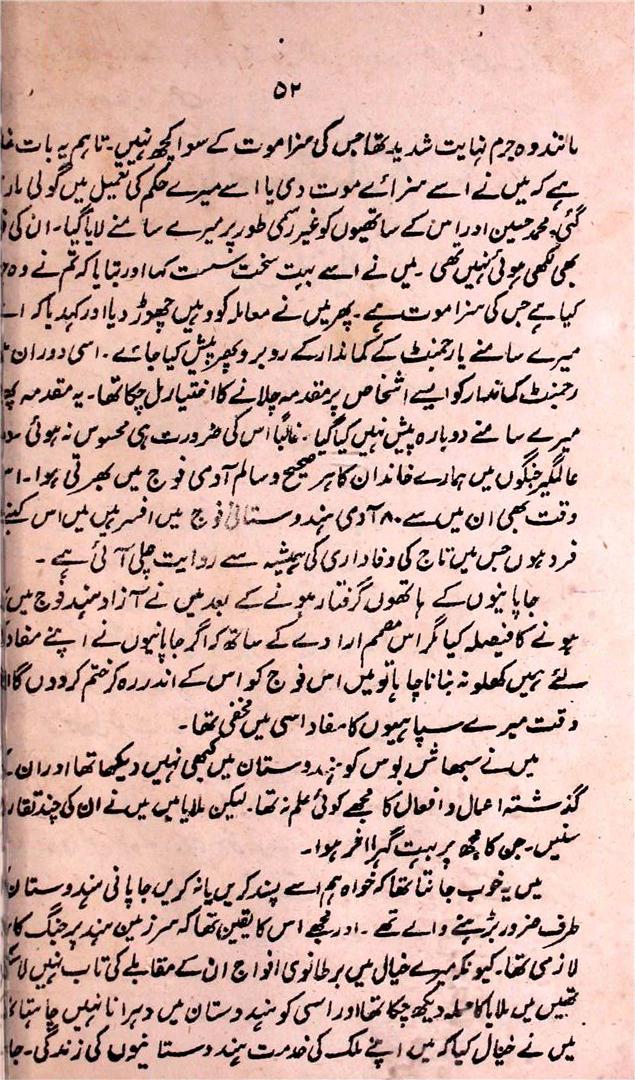 ۵۲
مانند وہ جرم نہایت شدید تھا جس کی سزا موت کے سوا کچھ نہیں۔ تاہم یہ بات
ہے کہ میں نے اسے سزائے موت دی یا اسے میرے حکم کی تعمیل میں گولی مار
گئی۔ محمد حسین اور اس کے ساتھیوں کو غیر رسمی طور پر میرے سامنے لایا گیا۔ ان کی
بھی لکھی ہوئی نہیں تھی۔ میں نے اسے بہت سخت سست کہا اور بتایا کہ تم نے وہ
کیا ہے جس کی سزا موت ہے۔ پھر میں نے معاملہ کو وہیں چھوڑ دیا اور کہدیا کہ
میرے سامنے یا رجمنٹ کے کمانڈار کے روبرو پھر پیش کیا جائے۔ اسی دوران
رجمنٹ کمانڈار کو ایسے اشخاص پر مقدمہ چلانے کا اختیار مل چکا تھا۔ یہ مقدمہ
میرے سامنے دوبارہ پیش نہیں کیا گیا۔ غالباً اس کی ضرورت ہی محسوس نہ ہوئی
عالمگیر جنگوں میں ہمارے خاندان کا ہر صحیح و سالم آدمی فوج میں بھرتی ہوا۔
وقت بھی ان میں سے ۸۰ آدمی ہندوستانی فوج میں افسر ہیں میں اس کنبے
فرد ہوں جس میں تاج کی وفاداری کی ہمیشہ سے روایت چلی آئی ہے۔
جاپانیوں کے ہاتھوں گرفتار ہونے کے بعد میں نے آزاد ہند فوج میں
ہونے کا فیصلہ کیا مگر اس مصمم ارادے کے ساتھ کہ اگر جاپانیوں نے اپنے مفاد
لئے ہمیں کھلونہ بنانا چاہا تو میں اس فوج کو اس کے اندر رہ کر ختم کر دوں گا
وقت میرے سپاہیوں کا مفاد اسی میں مخفی تھا۔
میں نے سبھاش بوس کو ہندوستان میں کبھی نہیں دیکھا تھا اور ان
گذشتہ اعمال و افعال کا مجھے کوئی علم نہ تھا۔ لیکن ملایا میں میں نے ان کی چند تقار
سنیں۔ جن کا مجھ پر بہت گہرا اثر ہوا۔
میں یہ خوب جانتا تھا کہ خواہ ہم اسے پسند کریں یا نہ کریں جاپانی ہندوستان
طرف ضرور بڑہنے والے تھے۔ اور مجھے اس کا یقین تھا کہ سرزمین ہند پر جنگ کا
لازمی تھا۔ کیونکہ میرے خیال میں برطانوی افواج ان کے مقابلے کی تاب نہیں لا
تھیں میں ملایا کا حملہ دیکھ چکا تھا اور اسی کو ہندوستان میں دہرانا نہیں چاہتا
میں نے خیال کیا کہ میں اپنے ملک کی خدمت ہندوستانیوں کی زندگی۔